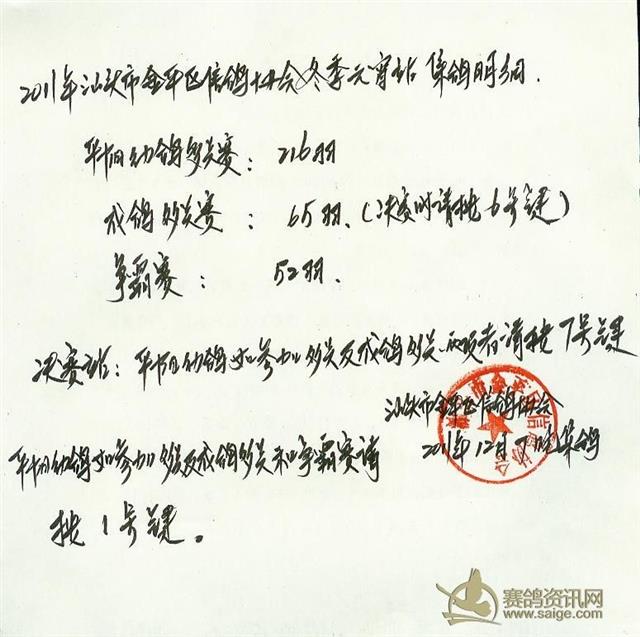 2011年汕头市金平区信鸽协会冬季元宵站集鸽明细.
平阳幼鸽多关赛: 216羽
成鸽多关赛: 65羽.(决赛时请按6号键)
争霸赛: 52羽.
决赛站:平阳幼鸽如参加多关及成鸽多关两项者请按7号键
汕头市金平区信鸽协会
2011年12月 晚集鸽
平阳幼鸽如参加多关及成鸽多关和争霸赛请
按1号键。
赛鸽资讯网
www.saige.com